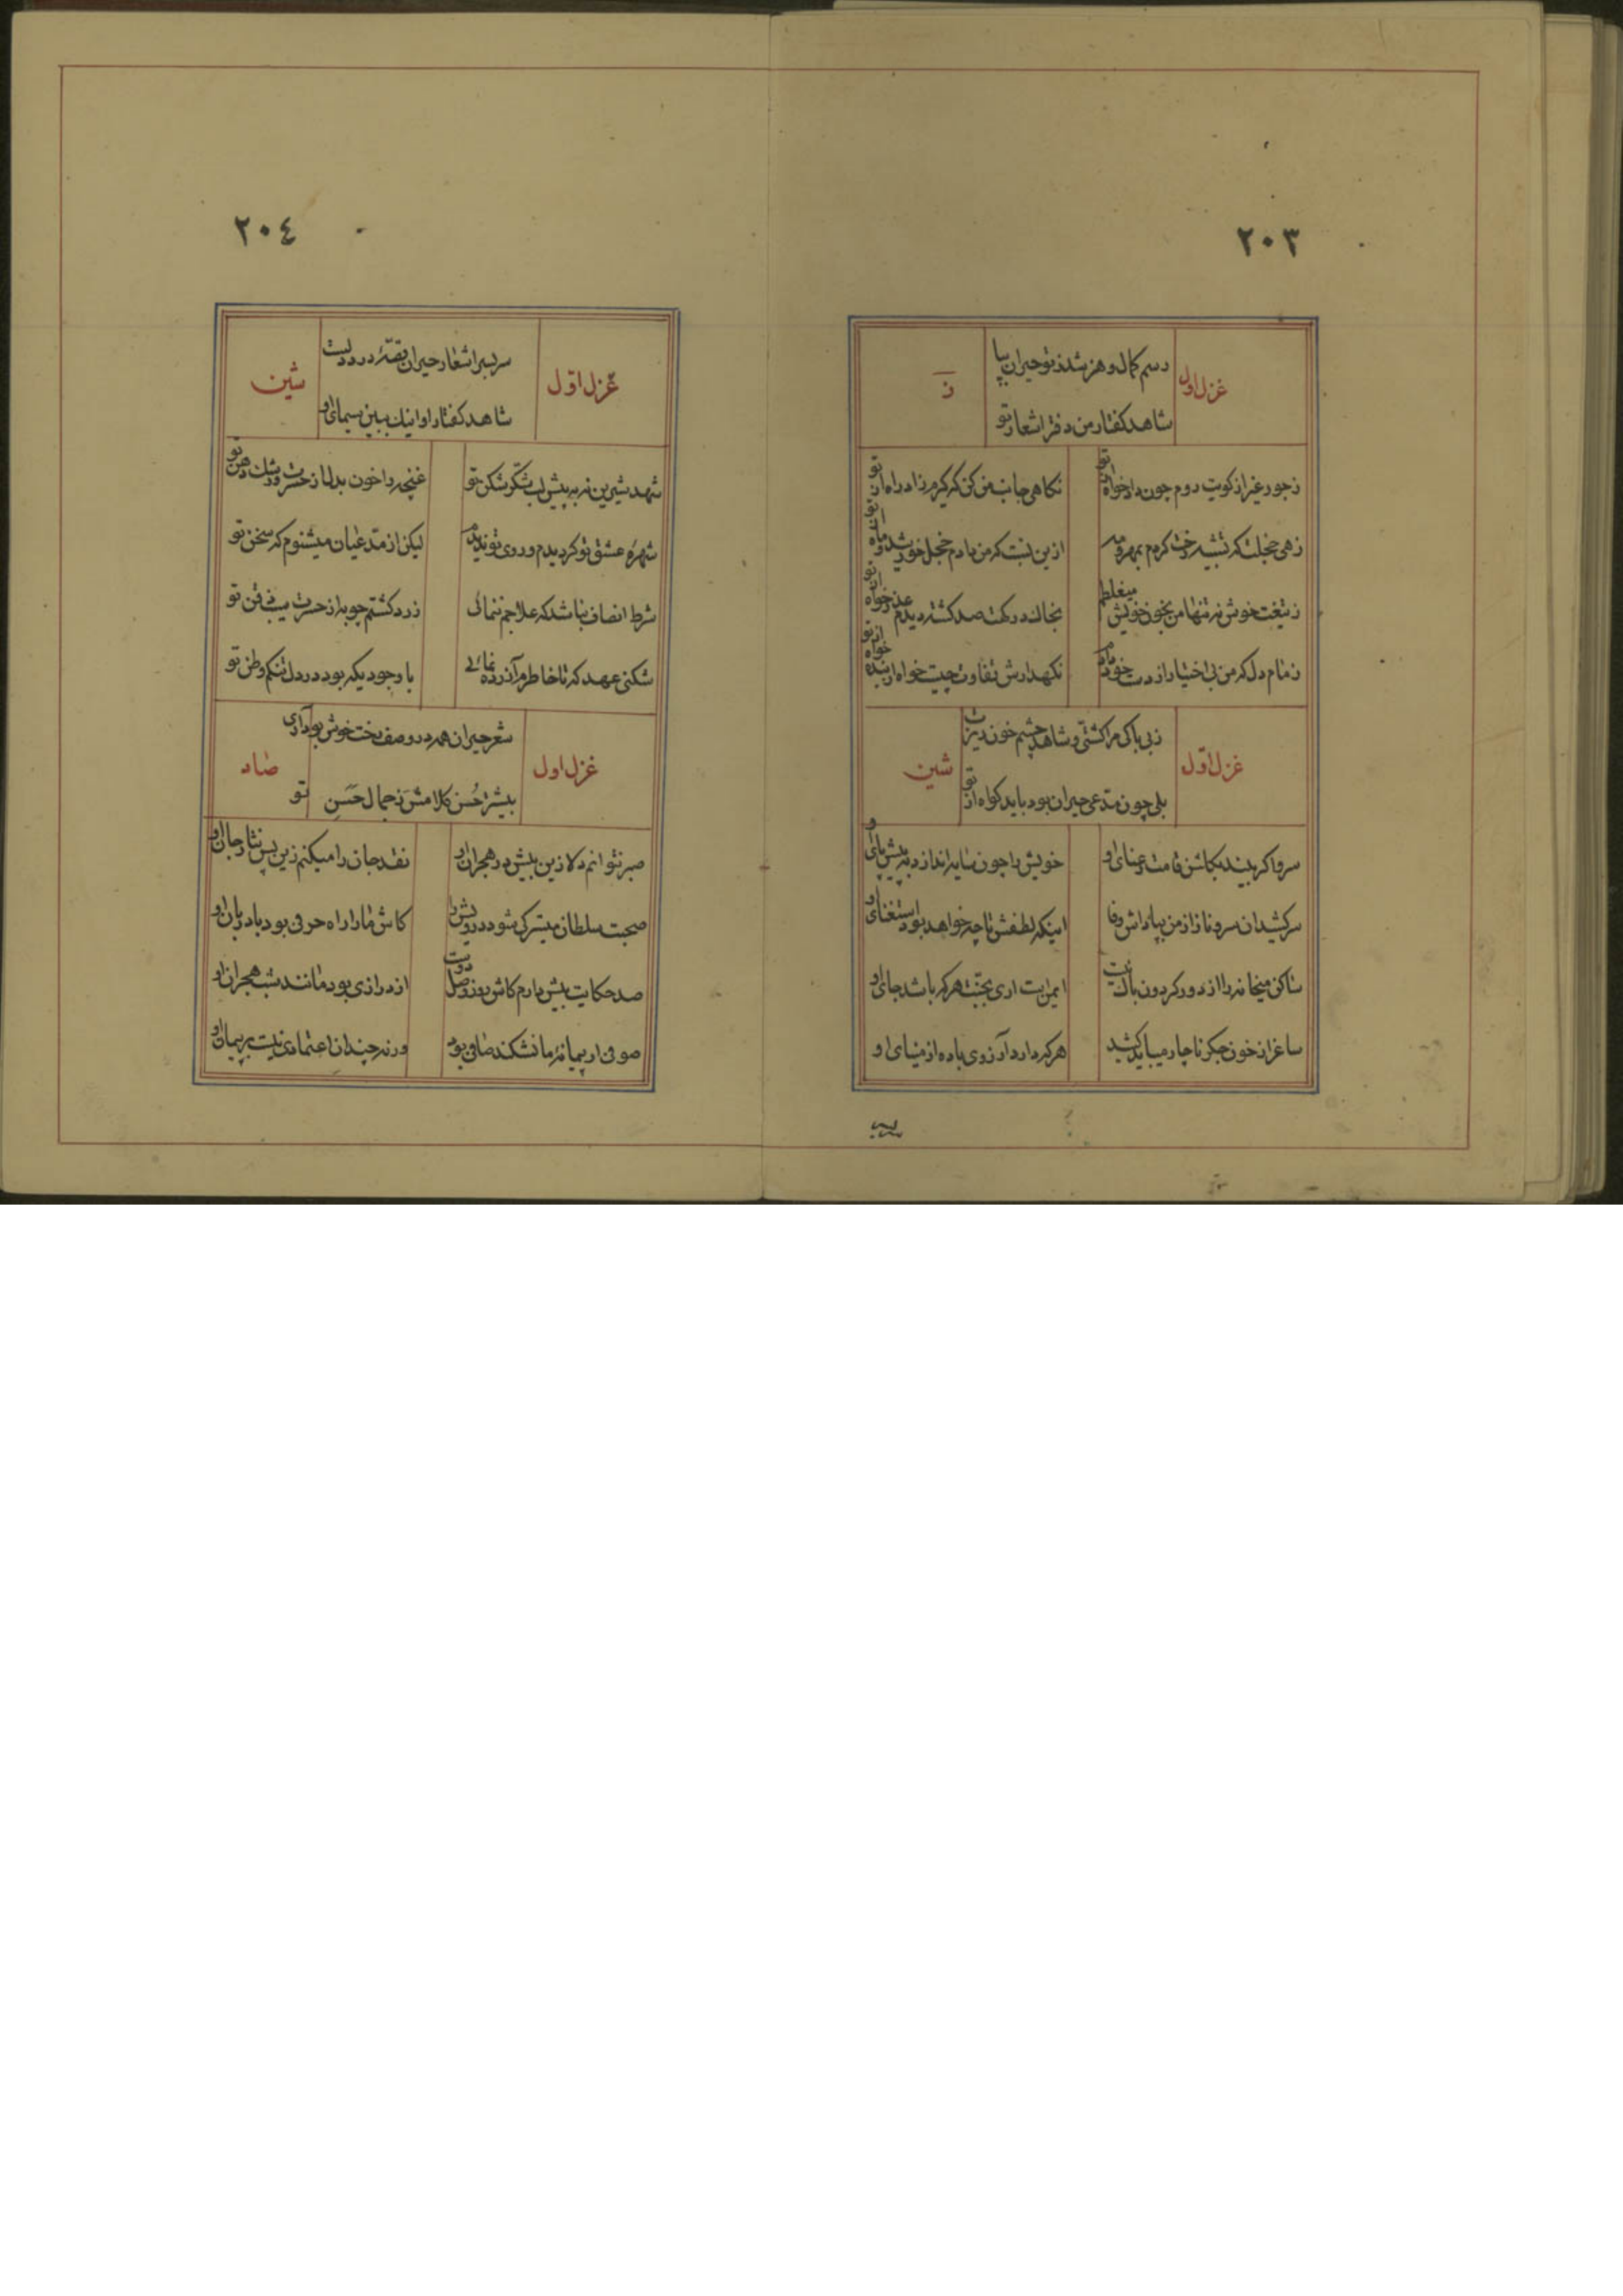 ٢٠٣
رسم کمال و هنر شد ز تو حیران بپا
غزل اول
ز
شاهد گفتار من دفتر اشعار تو
ز جور غیر از کویت روم چون دادخواه از تو
نکاهی جانب من کن که گیرم زاد راه از تو
زهی خجلت که تشبیه رخت کردم بمهر و مه
ازین نسبت که من دادم خجل خورشید و ماه از تو
ز تیغت خوش نه تنها من بخون خویش میغلطم
بخاک درکهت صد کشته دیدم عذر خواه از تو
زمام دل که من بی اختیار از دست خود دادم
نکهدارش تفاوت چیست خواه از بنده خواه از تو
ز بی باکی مرا کشتی و شاهد چشم خون ریزت
غزل اوّل
شین
بلی چون مدعی حیران بود باید کواه از تو
سرو اکر بیند بکلشن قامت رعنای او
خویش را چون سایه اندازد به پیش پای او
سرکشید ان سرو ناز از من بپاداش وفا
اینکه لطفش تا چه خواهد بود استغنای او
ساکن میخانه را از دور کردون باک نیست
ایمن است اری بجنّت هر که باشد جای او
ساغر از خون جکر ناچار میباید کشید
هر که دارد آرزوی باده از مینای او
سربسر
٢٠٤
سربسر اشعار حیران قصّهٔ درد دلست
غزل اوّل
شین
شاهد گفتار او اینک ببین سیمای او
شهد شیرین نه به پیش لب شکّر شکن تو
غنچه را خون بدل از حسرت و رشک دهن تو
شهرهٔ عشق تو کردیدم و روی تو ندیدم
لیکن از مدعیان میشنوم که سخن تو
شرط انصاف نباشد که علاجم ننمائی
زرد کشتم چو به از حسرت سیب ذقن تو
شکنی عهد که تا خاطرم آزرده نمائی
با وجودیکه بود در دل تنکم وطن تو
شعر حیران همه در وصف رخت خوش بود اری
غزل اول
صاد
بیشتر حُسن کلامش ز جمال حَسَنِ تو
صبر نتوانم دلا زین بیش در هجران او
نقد جان را میکنم زین پس نثار جان او
صحبت سلطان میسّر کی شود درویش را
کاش ما را راه حرفی بود با دربان او
صد حکایت بیش دارم کاش روز وصل دوست
از درازی بود مانند شب هجران او
صوفی ار پیمانهٔ ما نشکند صافی بود
ورنه چندان اعتمادی نیست بر پیمان او